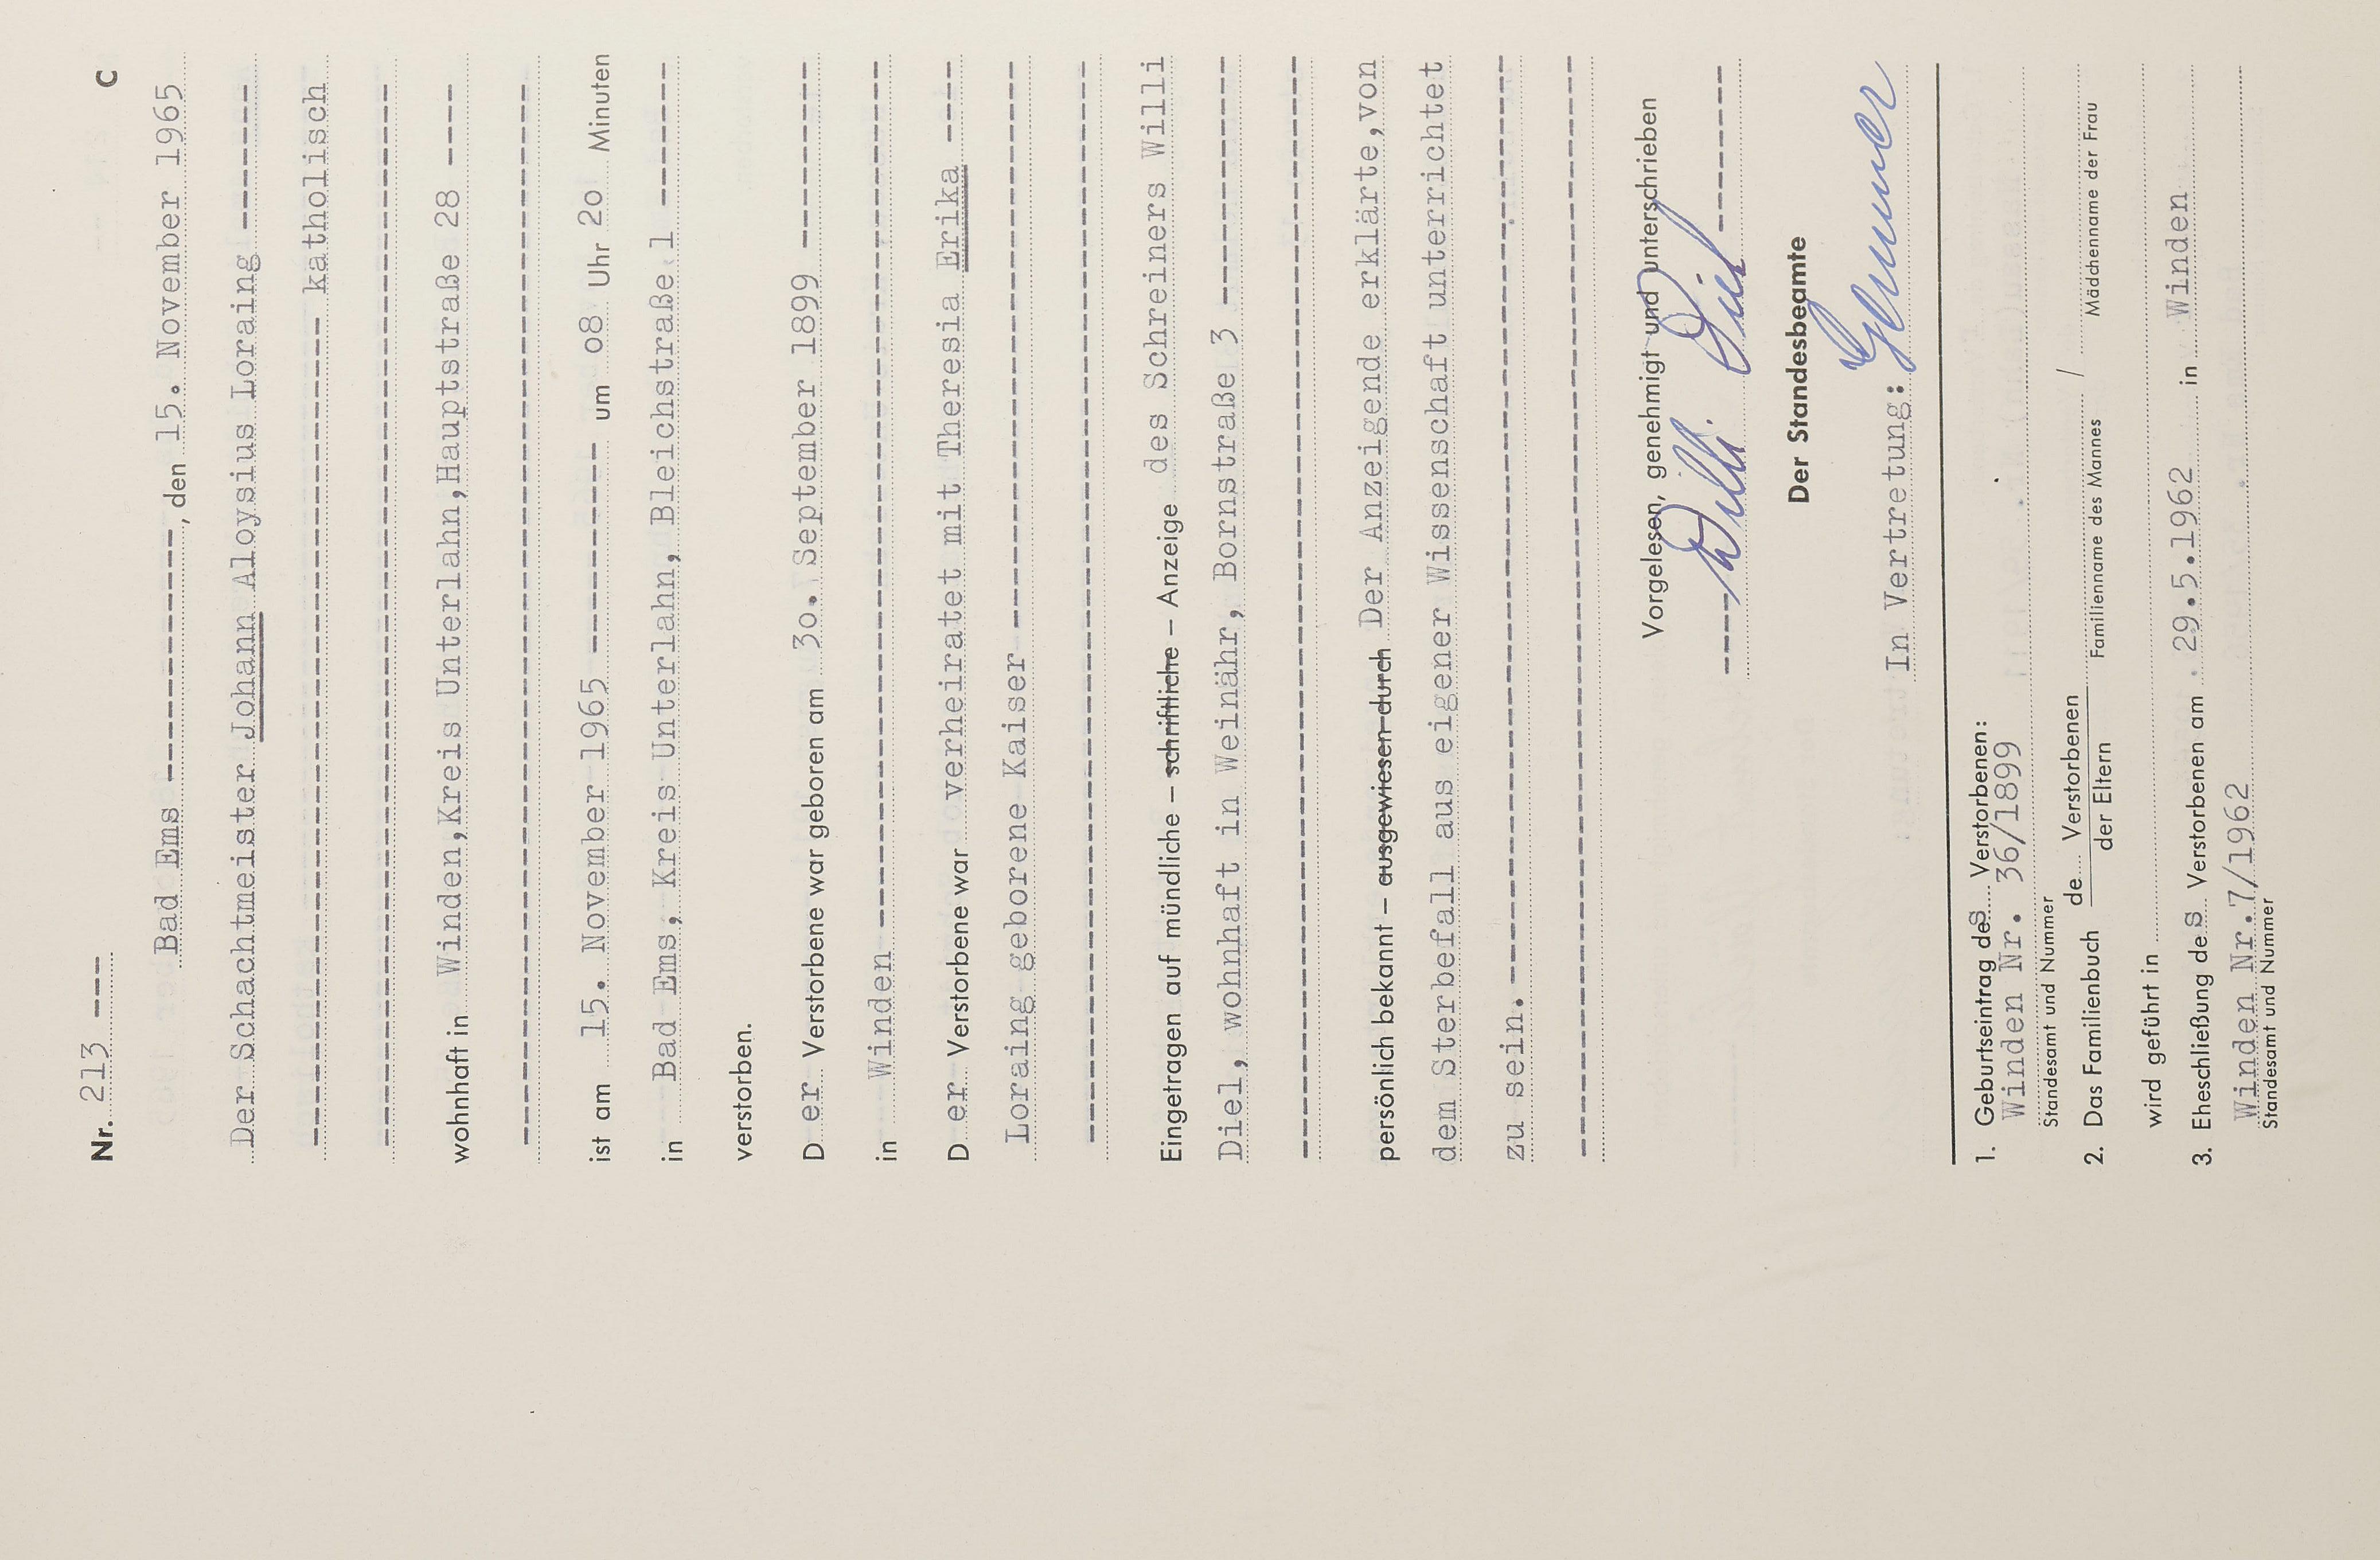 Nr. 213 ---- C
Bad Ems ----------------, den 15. November 1965
Der Schachtmeister Johann Aloysius Loraing --------
---------------------------------------- katholisch
wohnhaft in Winden,Kreis Unterlahn,Hauptstraße 28 ----
ist am 15. November 1965 ------------ um 08 Uhr 20 Minuten
in Bad Ems, Kreis Unterlahn, Bleichstraße 1 --------
verstorben.
D er Verstorbene war geboren am 30. September 1899 ----------
in Winden ----------------------------------------
D er Verstorbene war verheiratet mit Theresia Erika ----
Loraing geborene Kaiser --------------------------------
Eingetragen auf mündliche – schriftliche – Anzeige des Schreiners Willi
Diel, wohnhaft in Weinähr, Bornstraße 3 ------------
persönlich bekannt – ausgewiesen durch Der Anzeigende erklärte,von
dem Sterbefall aus eigener Wissenschaft unterrichtet
zu sein.--------------------------------------------
Vorgelesen, genehmigt und unterschrieben
----- Willi Diel ---------
Der Standesbeamte
In Vertretung:
1. Geburtseintrag des Verstorbenen:
Winden Nr. 36/1899
Standesamt und Nummer
2. Das Familienbuch de Verstorbenen
der Eltern
/
Familienname des Mannes Mädchenname der Frau
wird geführt in
3. Eheschließung des Verstorbenen am 29.5.1962 in Winden
Winden Nr.7/1962
Standesamt und Nummer